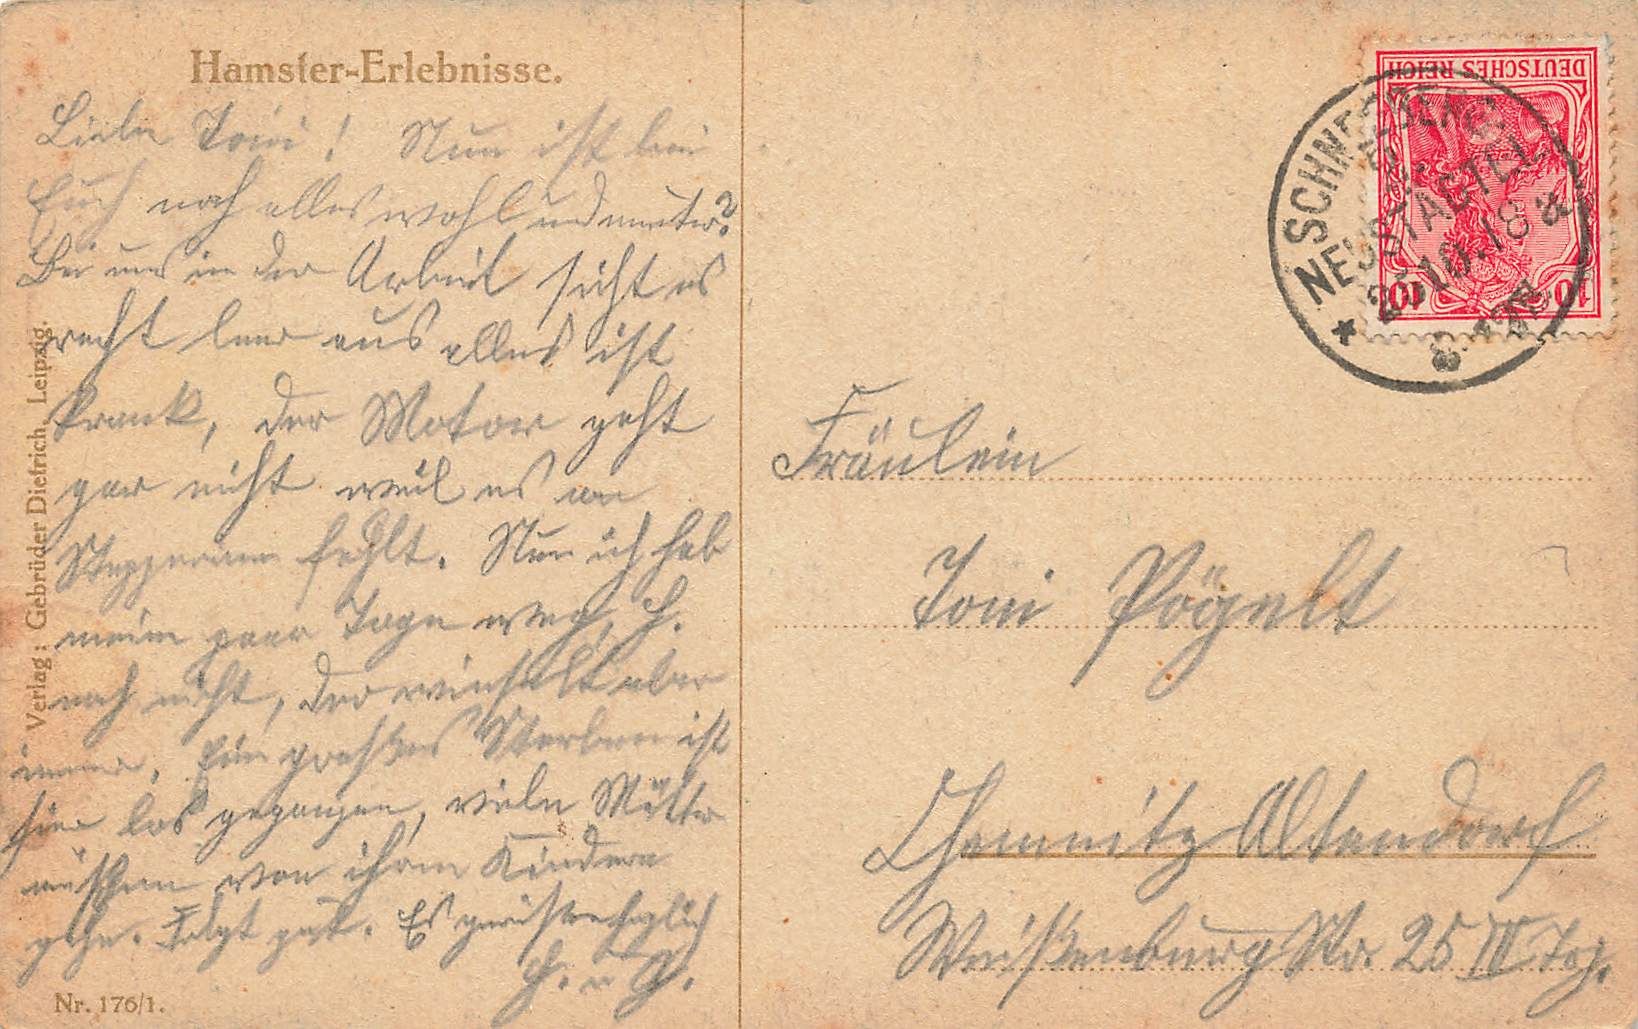 Hamster-Erlebnisse.
Liebe Toni! Nun ist bei
Euch noch alles wohl und munter?
Bei uns in der Arbeit sieht es
recht leer aus alles ist
krank, der Motor geht
gar nicht weil es an
fehlt. Nun ich hab
meine paar Tage weg, H.
noch nicht, der winselt aber
immer. Ein großes Sterben ist
hier los gegangen, viele Mütter
müssen von ihren Kindern
gehn. Folgt gut. Es grüßt herzlich
H. u. G.
Nr. 176/1.
Verlag: Gebrüder Dietrich, Leipzig.
DEUTSCHES REICH
10 10
SCHNEEBERG
NEUSTÄDTEL
10.18
Fräulein
Toni Pögelt
Chemnitz Altendorf
Weißenburg Str. 25 IV